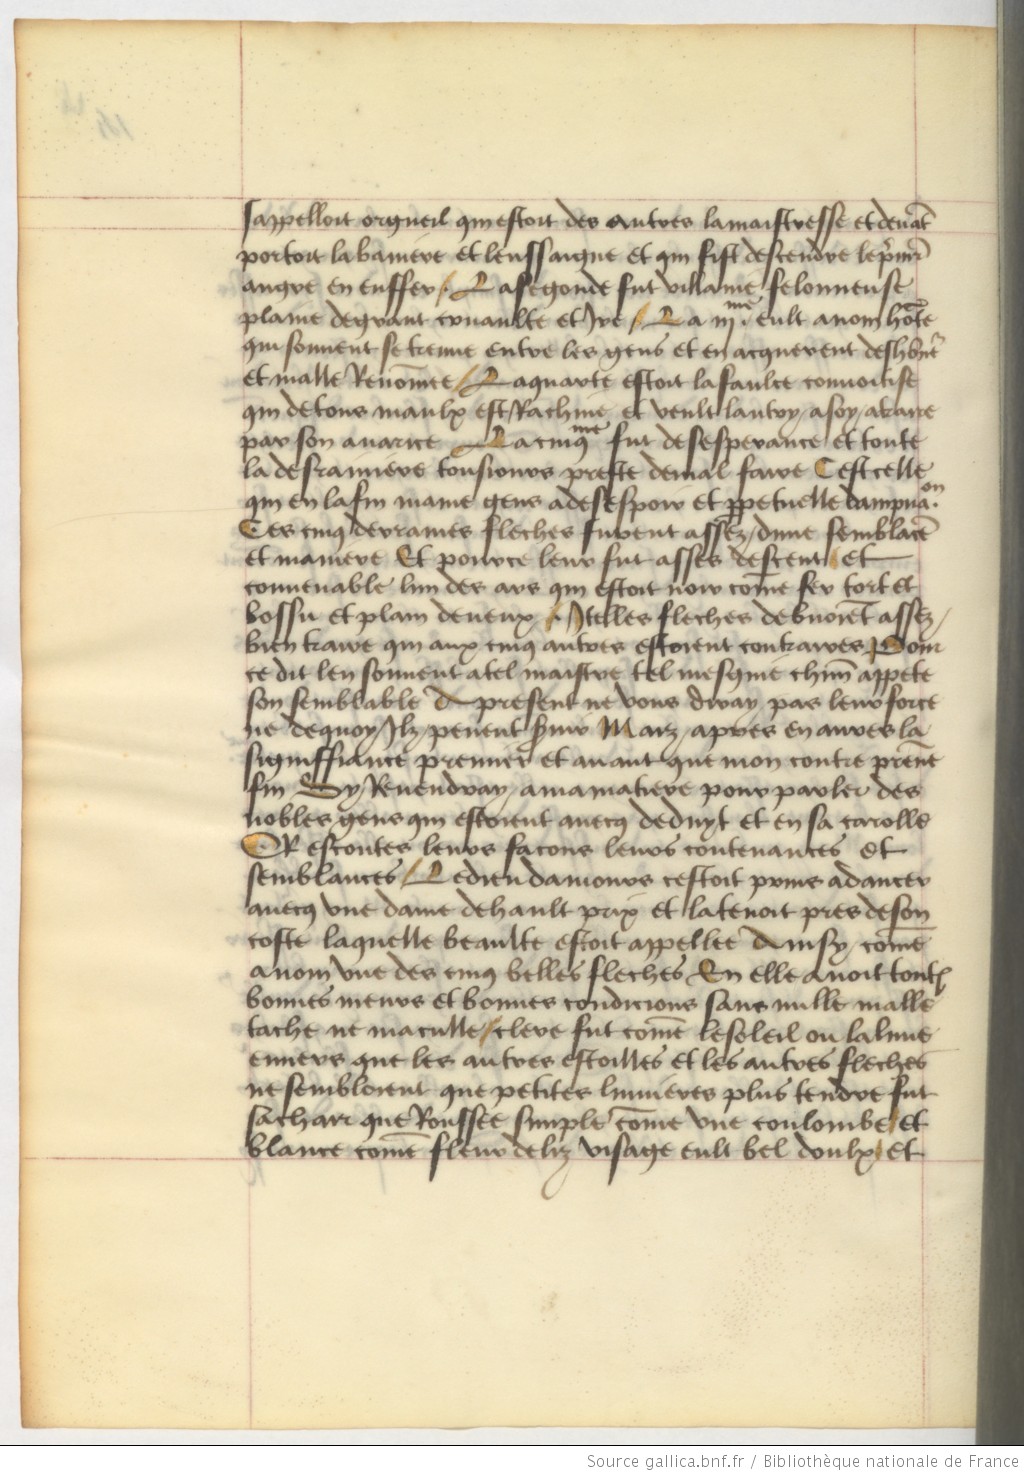 sappelloit orgueil qui estoit des autres la maistresse et deuāt
portoit la baniere et lenssaigne et qui fist descendre le p̄mīer
angre en enffer / La segonde fut villanie felonneuse
plaine de grant cruaulte et Ire / La iijme. eult a nom hōte
qui souuent se treuue entre les gens et en acquerent deshōnr̄
et malle Renōmee / La quarte estoit la faulce conuoitise
qui de tous maulx est Rachine et veult lautry a soy atraire
par son auarice La cinqme fut desesperance et toute
la desrainiere tousiours preste de mal faire Cest celle
qui en la fin maine gens a desespoir et ꝑpetuelle dampnaon.
Ces cinq derraines fleches furent assez dune semblāce
et maniere Et pource leur fut asses descent / et
conuenable lun des ars qui estoit noir cōme fer tort et
bossu et plain de neux / Itelles fleches debuoiēt assez
bien traire qui aux cinq autres estoient contraires Pour
ce dit len souuent a tel maistre tel mesgnie chūn appete
son semblable A present ne vous diray pas leur force
ne de quoy Ilz peuent s̄uir Marz apres en aures la
signiffiance premier et auant que mon contre prēne
fin Sy Reuendray a ma matiere pour parler des
nobles gens qui estoient auecq deduyt et en sa carolle
OR escoutes leurs facons leurs contenances et
semblances / Le dieu damours cestoit prins a dancer
auecq vne dame de hault prix et la tenoit pres de son
coste laquelle beaulte estoit appellee Ainsy cōme
a nom vne des cinq belles fleches En elle auoit toutes
bonnes meurs et bonnes condicions sans nulle malle
tache ne maculle / clere fut cōme le soleil ou la lune
enuers que les autres estoilles et les autres fleches
ne sembloient que petites lumieres plus tendre fut
sa charr que Rousee simple cōme vne coulombe / et
blance comē fleur de liz visage eult bel doulx / et
Source gallica.bnf.fr / Bibliothèque nationale de France